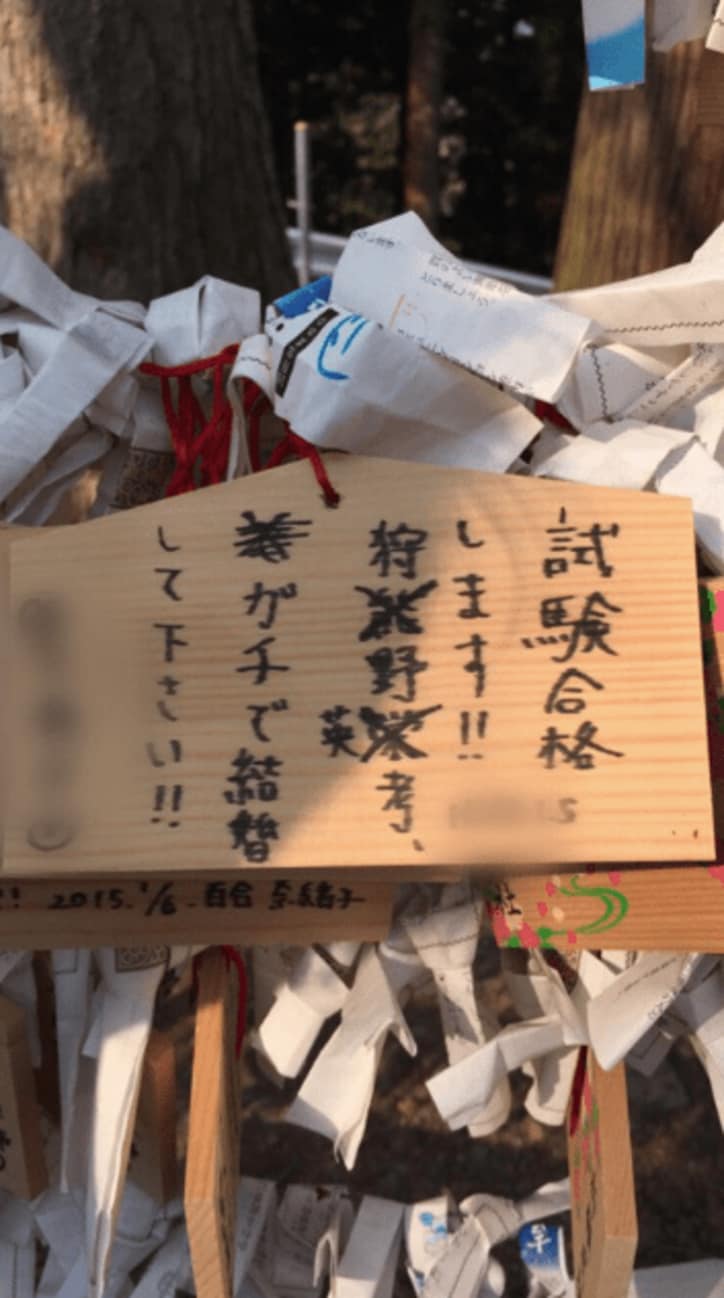 試験合格
します!!
狩野英考、
ガチで結婚
して下さい!!
2015.1/6 百合 奈緒子